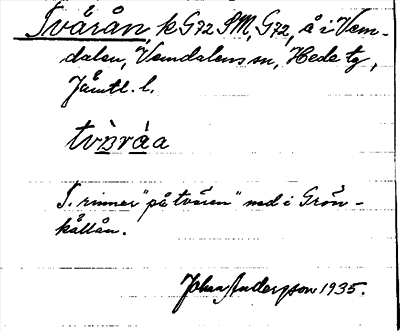 Tvärån, k G72 SM, G72, å i Vem-
dalen, Vemdalens sn, Hede tg,
Jämtl. l.
tvæ̀ráa
T. rinner "på tvären" ned i Grön-
källån.
Johan Anderson 1935.